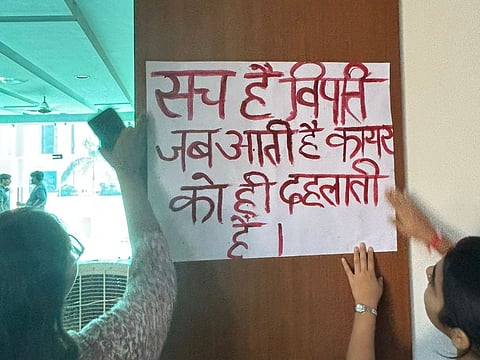 सच है विपति
जब आती है कायर
को ही दहलाती
है ।